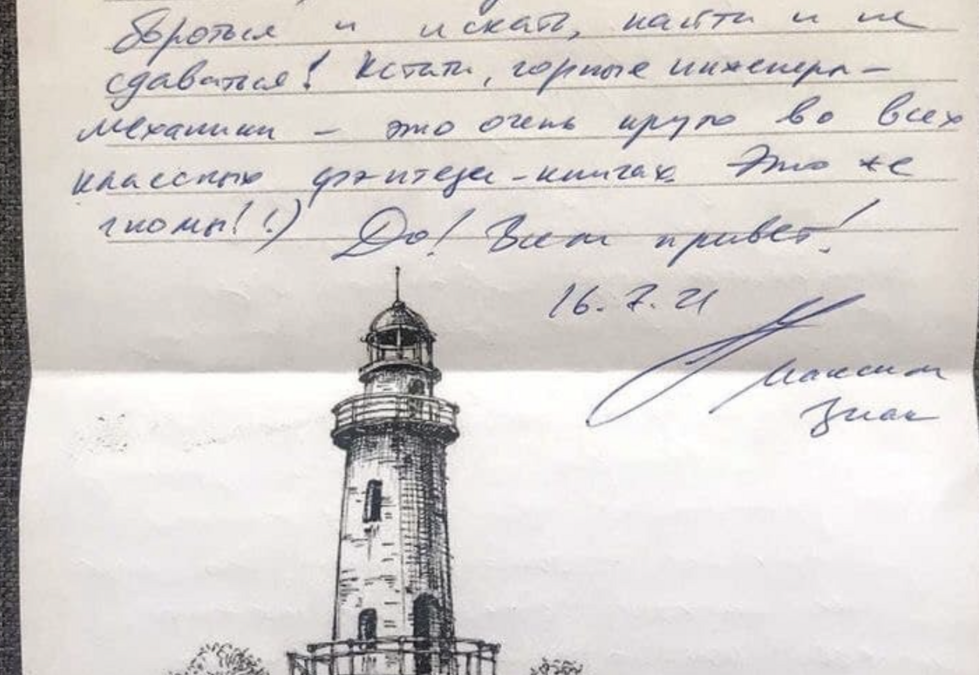 бороться и искать, найти и не
сдаваться! Кстати, горные инженеры-
механики – это очень круто во всех
классных фэнтези-книгах. Это же
гномы! :) До! Всем привет!
16.7.21
Максим
Знак